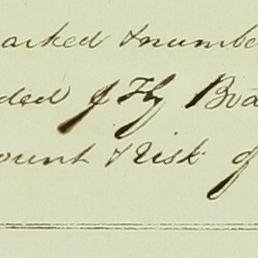 arked & numbe
ded p Fly Boa
ount & Risk of